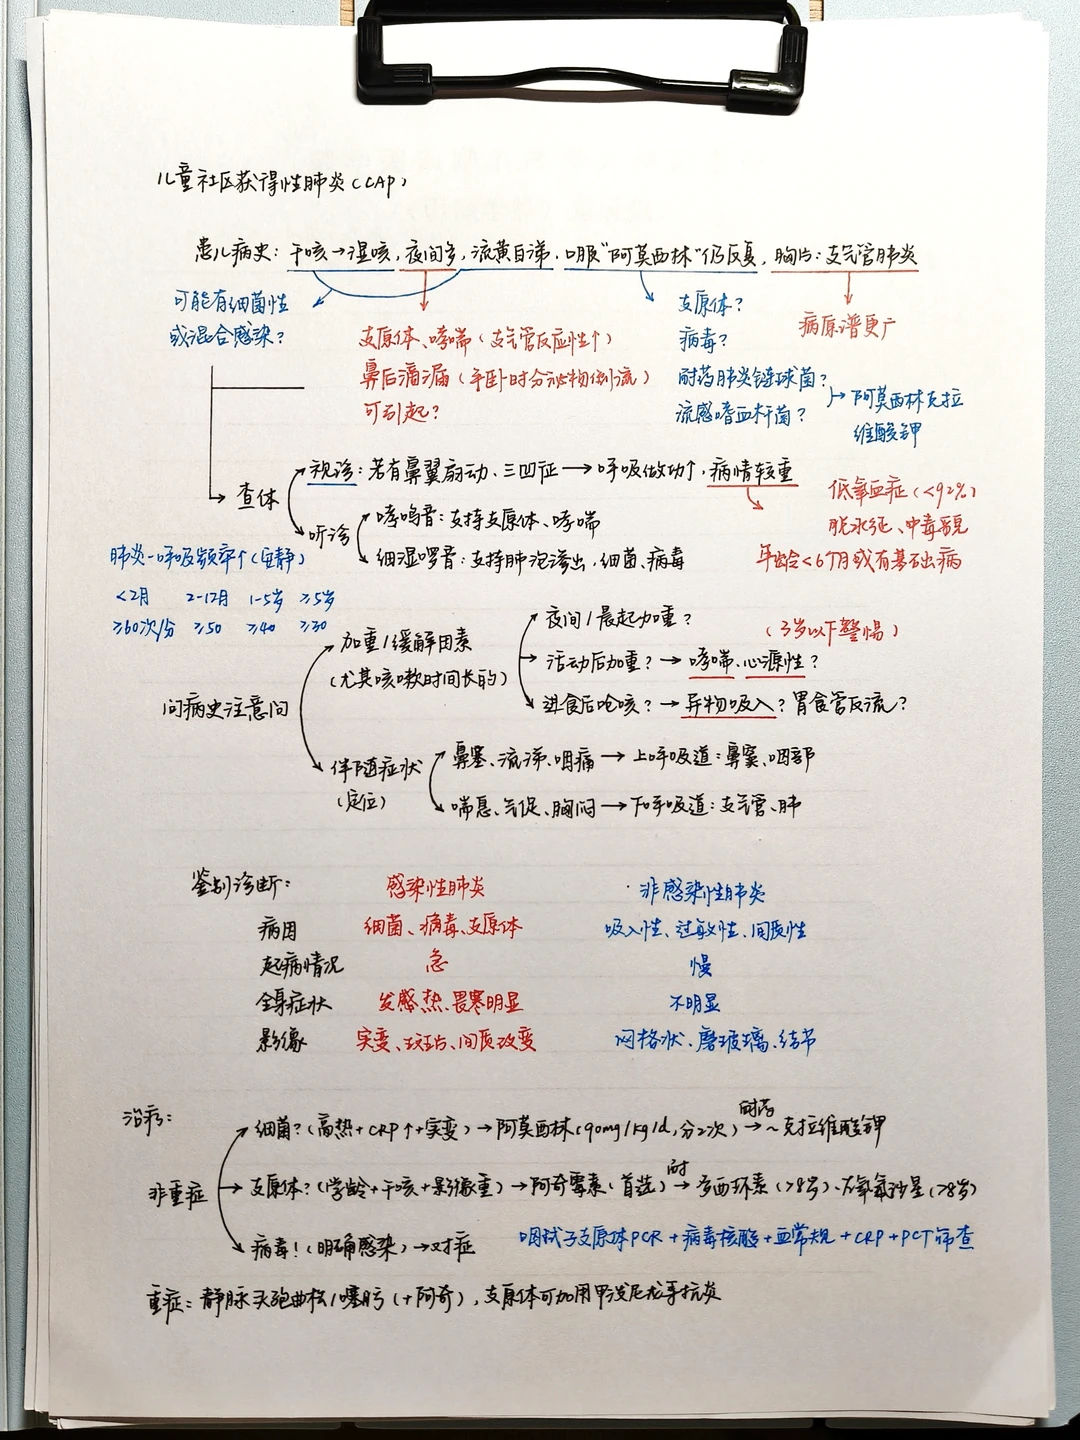 儿童社区获得性肺炎(CAP)
患儿病史：干咳→湿咳，夜间多，流黄白涕，口服"阿莫西林"仍反复，胸片：支气管肺炎
可能有细菌性
或混合感染？
支原体、哮喘(支气管反应性↑)
鼻后滴漏(平卧时分泌物倒流)
可引起？
支原体？
病毒？
耐药肺炎链球菌？
流感嗜血杆菌？
→阿莫西林克拉
维酸钾
病原谱更广
查体
视诊：若有鼻翼扇动、三凹征→呼吸做功↑，病情较重
听诊
哮鸣音：支持支原体、哮喘
细湿啰音：支持肺泡渗出，细菌、病毒
低氧血症(<92%)
脱水征、中毒貌
年龄<6个月或有基础病
肺炎-呼吸频率↑(安静)
<2月 2-12月 1-5岁 ≥5岁
≥60次/分 ≥50 ≥40 ≥30
问病史注意问
加重/缓解因素
(尤其咳嗽时间长的)
夜间/晨起加重？
活动后加重？→哮喘、心源性？
(3岁以下警惕)
进食后呛咳？→异物吸入？胃食管反流？
伴随症状
(定位)
鼻塞、流涕、咽痛→上呼吸道：鼻窦、咽部
喘息、气促、胸闷→下呼吸道：支气管、肺
鉴别诊断： 感染性肺炎 非感染性肺炎
病因 细菌、病毒、支原体 吸入性、过敏性、间质性
起病情况 急 慢
全身症状 发感热、畏寒明显 不明显
影像 实变、斑片、间质改变 网格状、磨玻璃、结节
治疗：
非重症
细菌？(高热+CRP↑+实变)→阿莫西林(90mg/kg/d，分2次)→耐药~克拉维酸钾
支原体？(学龄+干咳+影像重)→阿奇霉素(首选)→耐多西环素(>8岁)、左氧氟沙星(>8岁)
病毒！(明确感染)→对症
咽拭子支原体PCR+病毒核酸+血常规+CRP+PCT筛查
重症：静脉头孢曲松/噻肟(+阿奇)，支原体可加用甲泼尼龙等抗炎